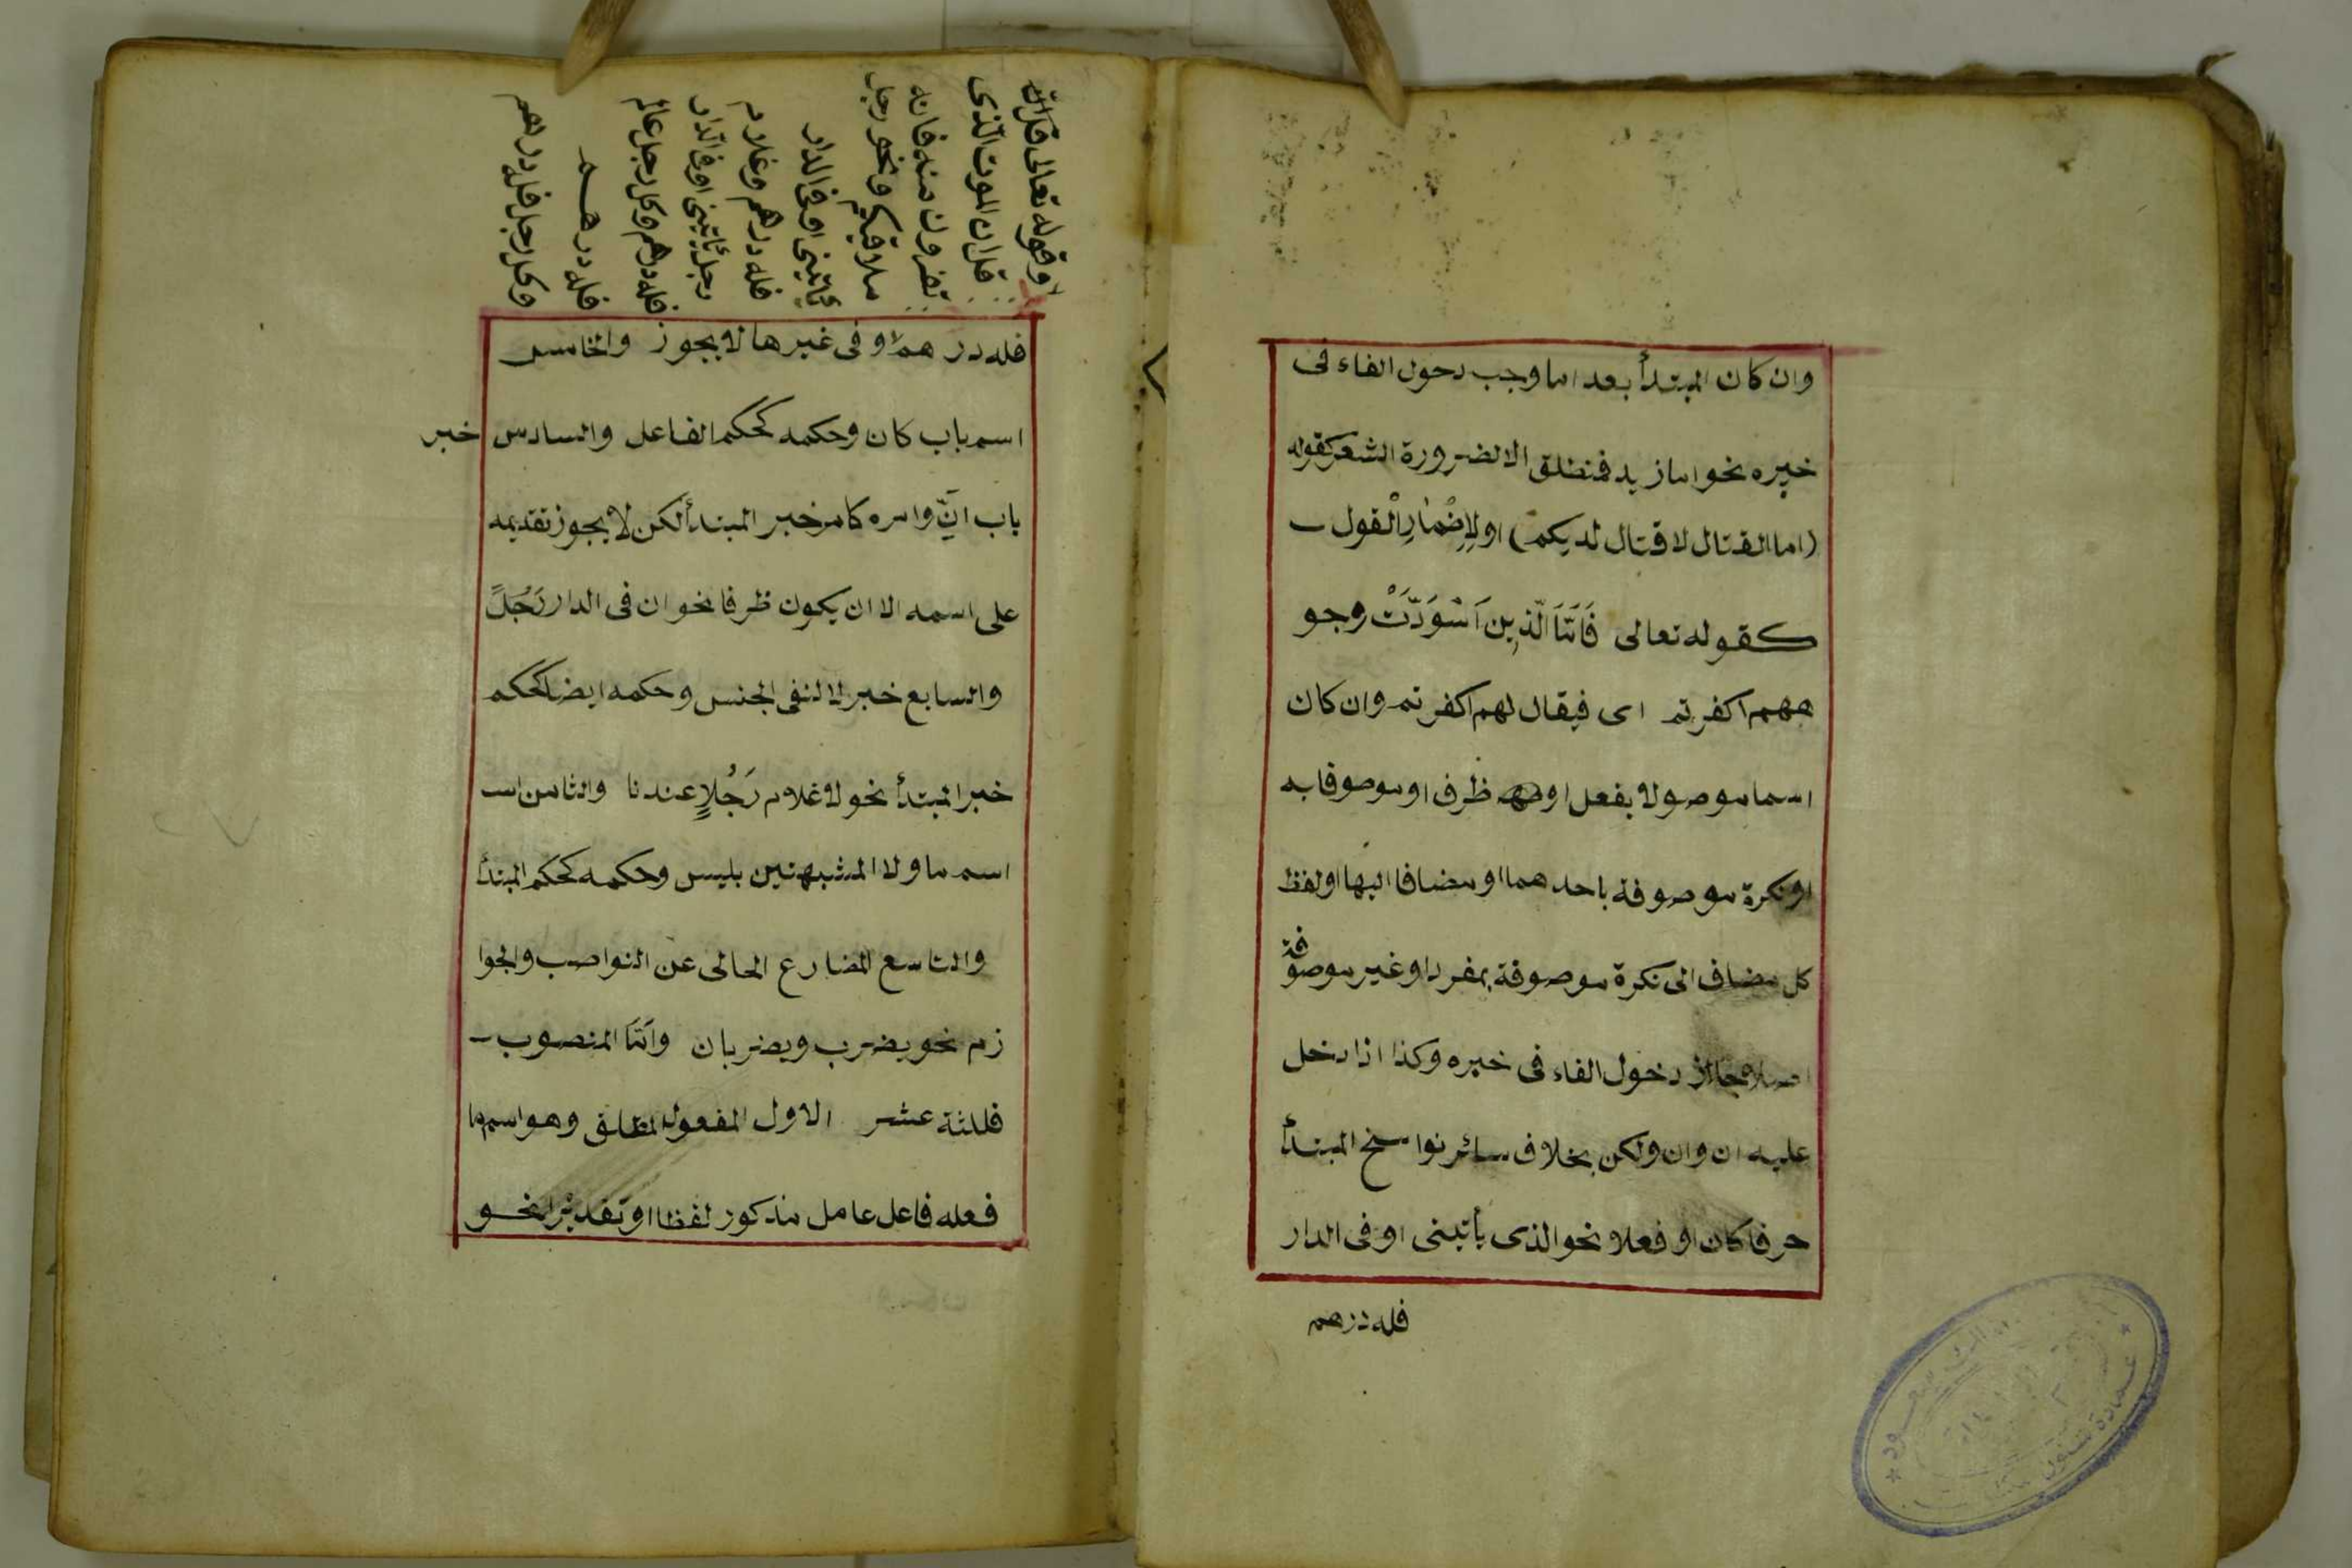 وان كان المبتدأ بعد اما وجب دحول الفاء فى
خبره نحو اما زيد فمنطلق الا لضرورة الشعر كقوله
(اما القتال لا قتال لديكم) او لِاِضْمٰارِ الْقول
كقوله تعالى فَاَمَّا الَّذِينَ اَسْوَدَّتْ وجو
ههم اكفرتم اى فيقال لهم اكفرتم وان كان
اسما موصولا بفعل او ظرف او موصوفا به
او نكرة موصوفة باحدهما او مضافا اليها او لفظ
كل مضاف الى نكرة موصوفة بمفرد او غير موصوفة
اصلا جاز دخول الفاء فى خبره وكذا اذا دخل
عليه ان وان ولكن بخلاف سائر نواسخ المبتدأ
حرفا كان او فعلا نحو الذى يأتينى او فى الدار
فله درهم
او قوله تعالى قل ان
قل ان الموت الّذى
تفرون منه فانه
ملاقيكم ونحو رجل
يأتينى او فى الدار
فله درهم وغلام
رجل يأتينى او فى الدار
فله درهم وكل رجل عالم
فله درهم
وكل رجل فله درهم
فله درهم او فى غيرها لا يجوز والخامس
اسم باب كان وحكمه كحكم الفاعل والسادس خبر
باب انّ وامره كامر خبر المبتدأ لكن لا يجوز تقديمه
على اسمه الا ان يكون ظرفا نحو ان فى الدار رَجُلً
والسابع خبر لا لنفى الجنس وحكمه ايضا كحكم
خبر المبتدأ نحو لا غلام رَجُلٍ عندنا والثامن اسـ
اسم ما ولا المشبهتين بليس وحكمه كحكم المبتدأ
والتاسع المضارع الحالى عن النواصب والجوا
زم نحو يضرب ويضربان وَاَمَّا المنصوب
فلثة عشر الاول المفعول المطلق وهو اسم ما
فعله فاعل عامل مذكور لفظا او تقديرا نحو